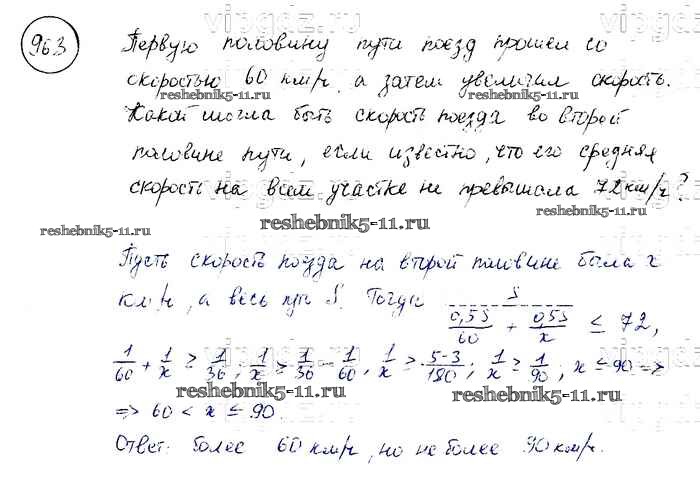 963
Первую половину пути поезд прошел со
скоростью 60 км/ч, а затем увеличил скорость.
reshebnik5-11.ru reshebnik5-11.ru
Какой могла быть скорость поезда во второй
половине пути, если известно, что его средняя
скорость на всем участке не превышала 72 км/ч?
reshebnik5-11.ru reshebnik5-11.ru reshebnik5-11.ru
Пусть скорость поезда на второй половине была x
км/ч, а весь путь S. Тогда S/(0,5S/60 + 0,5S/x) ≤ 72,
1/60 + 1/x ≥ 1/36; 1/x ≥ 1/36 - 1/60, 1/x ≥ (5-3)/180; 1/x ≥ 1/90, x ≤ 90 =>
reshebnik5-11.ru reshebnik5-11.ru
=> 60 < x ≤ 90.
Ответ: более 60 км/ч, но не более 90 км/ч.